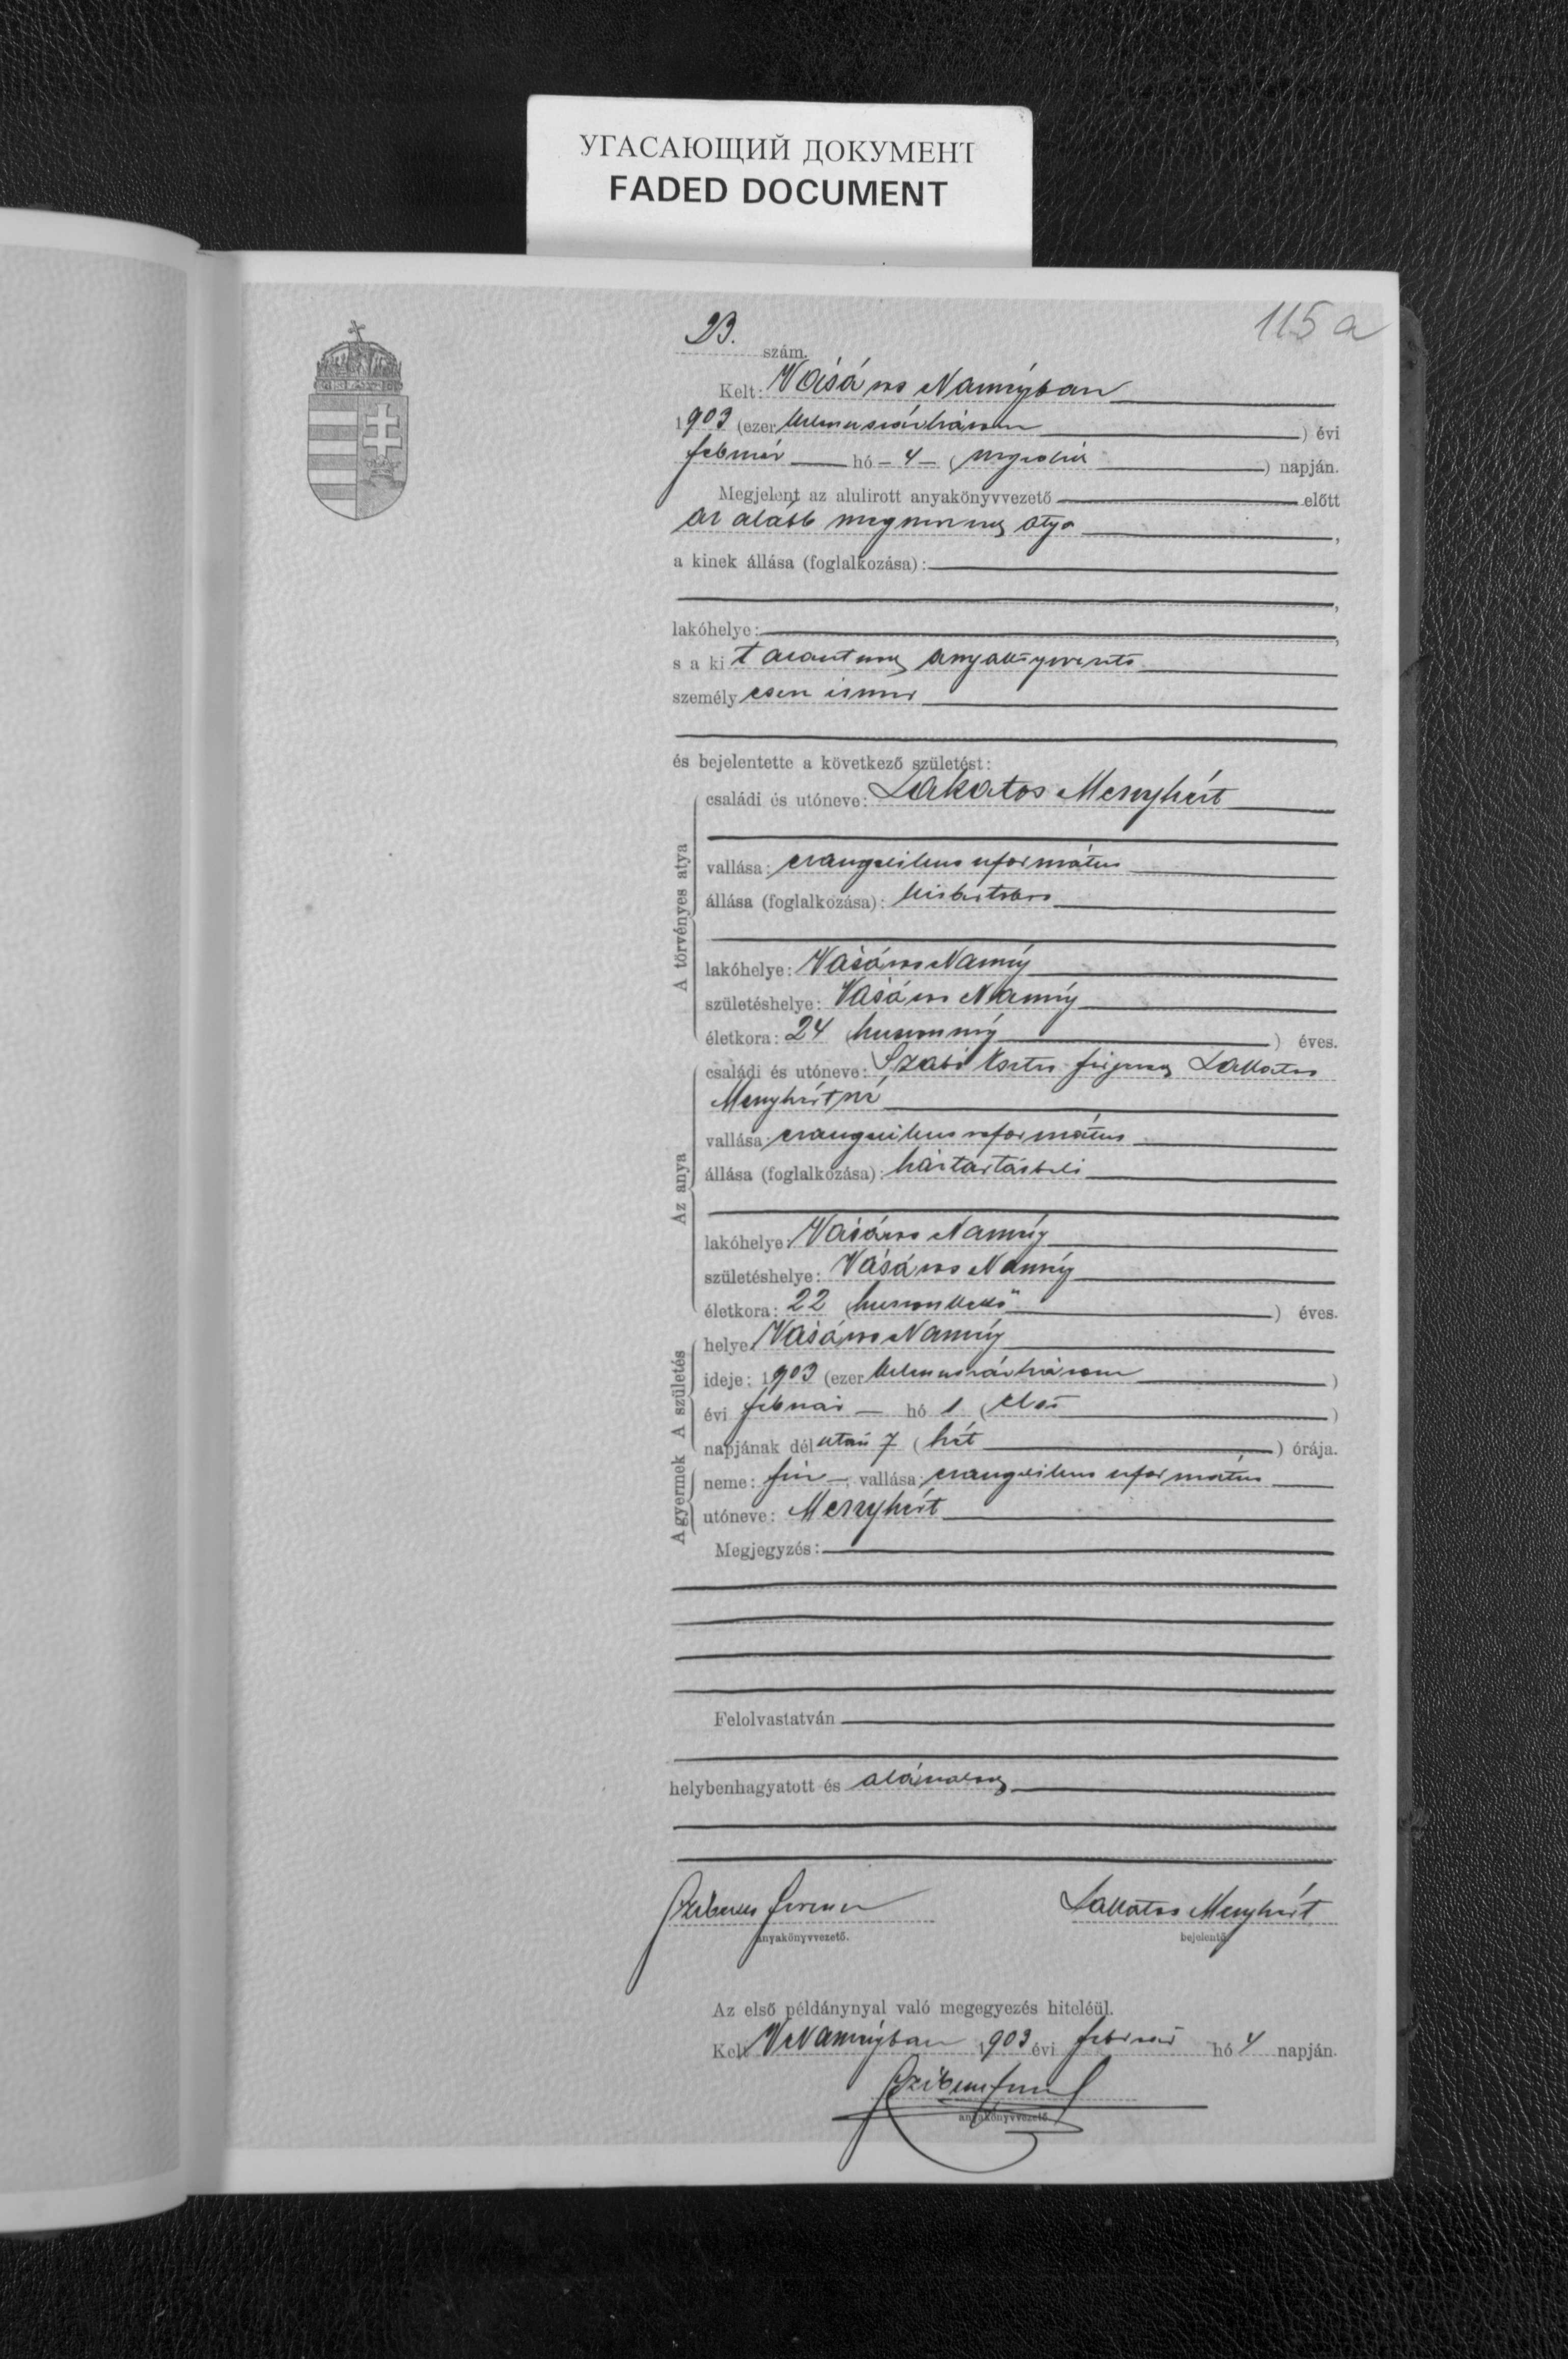 УГАСАЮЩИЙ ДОКУМЕНТ
FADED DOCUMENT
115 a
23. szám.
Kelt: Vásáros Naményban
1903 (ezer kilenczszázhárom) évi
február hó 4 (negyedik) napján.
Megjelent az alulirott anyakönyvvezető előtt
az alább megnevezett atya,
a kinek állása (foglalkozása):
lakóhelye:
s a kit alant nevezett anyakönyvvezető
személyesen ismer
és bejelentette a következő születést:
A törvényes atya
családi és utóneve: Lakatos Menyhért
vallása: evangelikus református
állása (foglalkozása): kisbirtokos
lakóhelye: Vásáros Namény
születéshelye: Vásáros Namény
életkora: 24 (huszonnégy) éves.
Az anya
családi és utóneve: Szabó Eszter férjezett Lakatos
Menyhértné
vallása: evangelikus református
állása (foglalkozása): háztartásbeli
lakóhelye: Vásáros Namény
születéshelye: Vásáros Namény
életkora: 22 (huszonkettő) éves.
A születés
helye: Vásáros Namény
ideje: 1903 (ezer kilenczszázhárom)
évi február hó 1 (első)
napjának délután 7 (hét) órája.
A gyermek
neme: fiú; vallása: evangelikus református
utóneve: Menyhért
Megjegyzés:
Felolvastatván
helybenhagyatott és aláíratott
Ferencz Lakatos Menyhért
anyakönyvvezető. bejelentő
Az első példánynyal való megegyezés hiteléül.
Kelt VNaményban 1903 évi február hó 4 napján.
anyakönyvvezető.